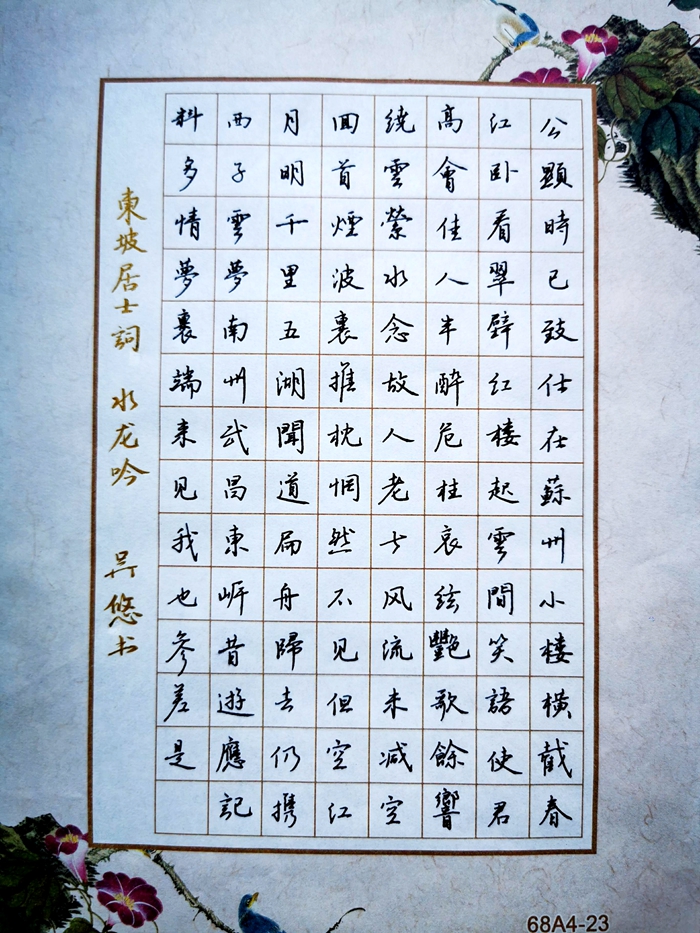 公顯時已致仕在蘇州小楼横截春
红卧看翠壁红楼起雲間笑語使君
高會佳人半醉危柱哀絃艷歌餘響
绕雲縈水念故人老大风流未减空
回首煙波裏推枕惘然不见但空红
月明千里五湖聞道扁舟歸去仍携
西子雲夢南州武昌東岸昔遊應記
料多情夢裏端来见我也参差是
東坡居士詞 水龙吟 吴悠书
68A4-23